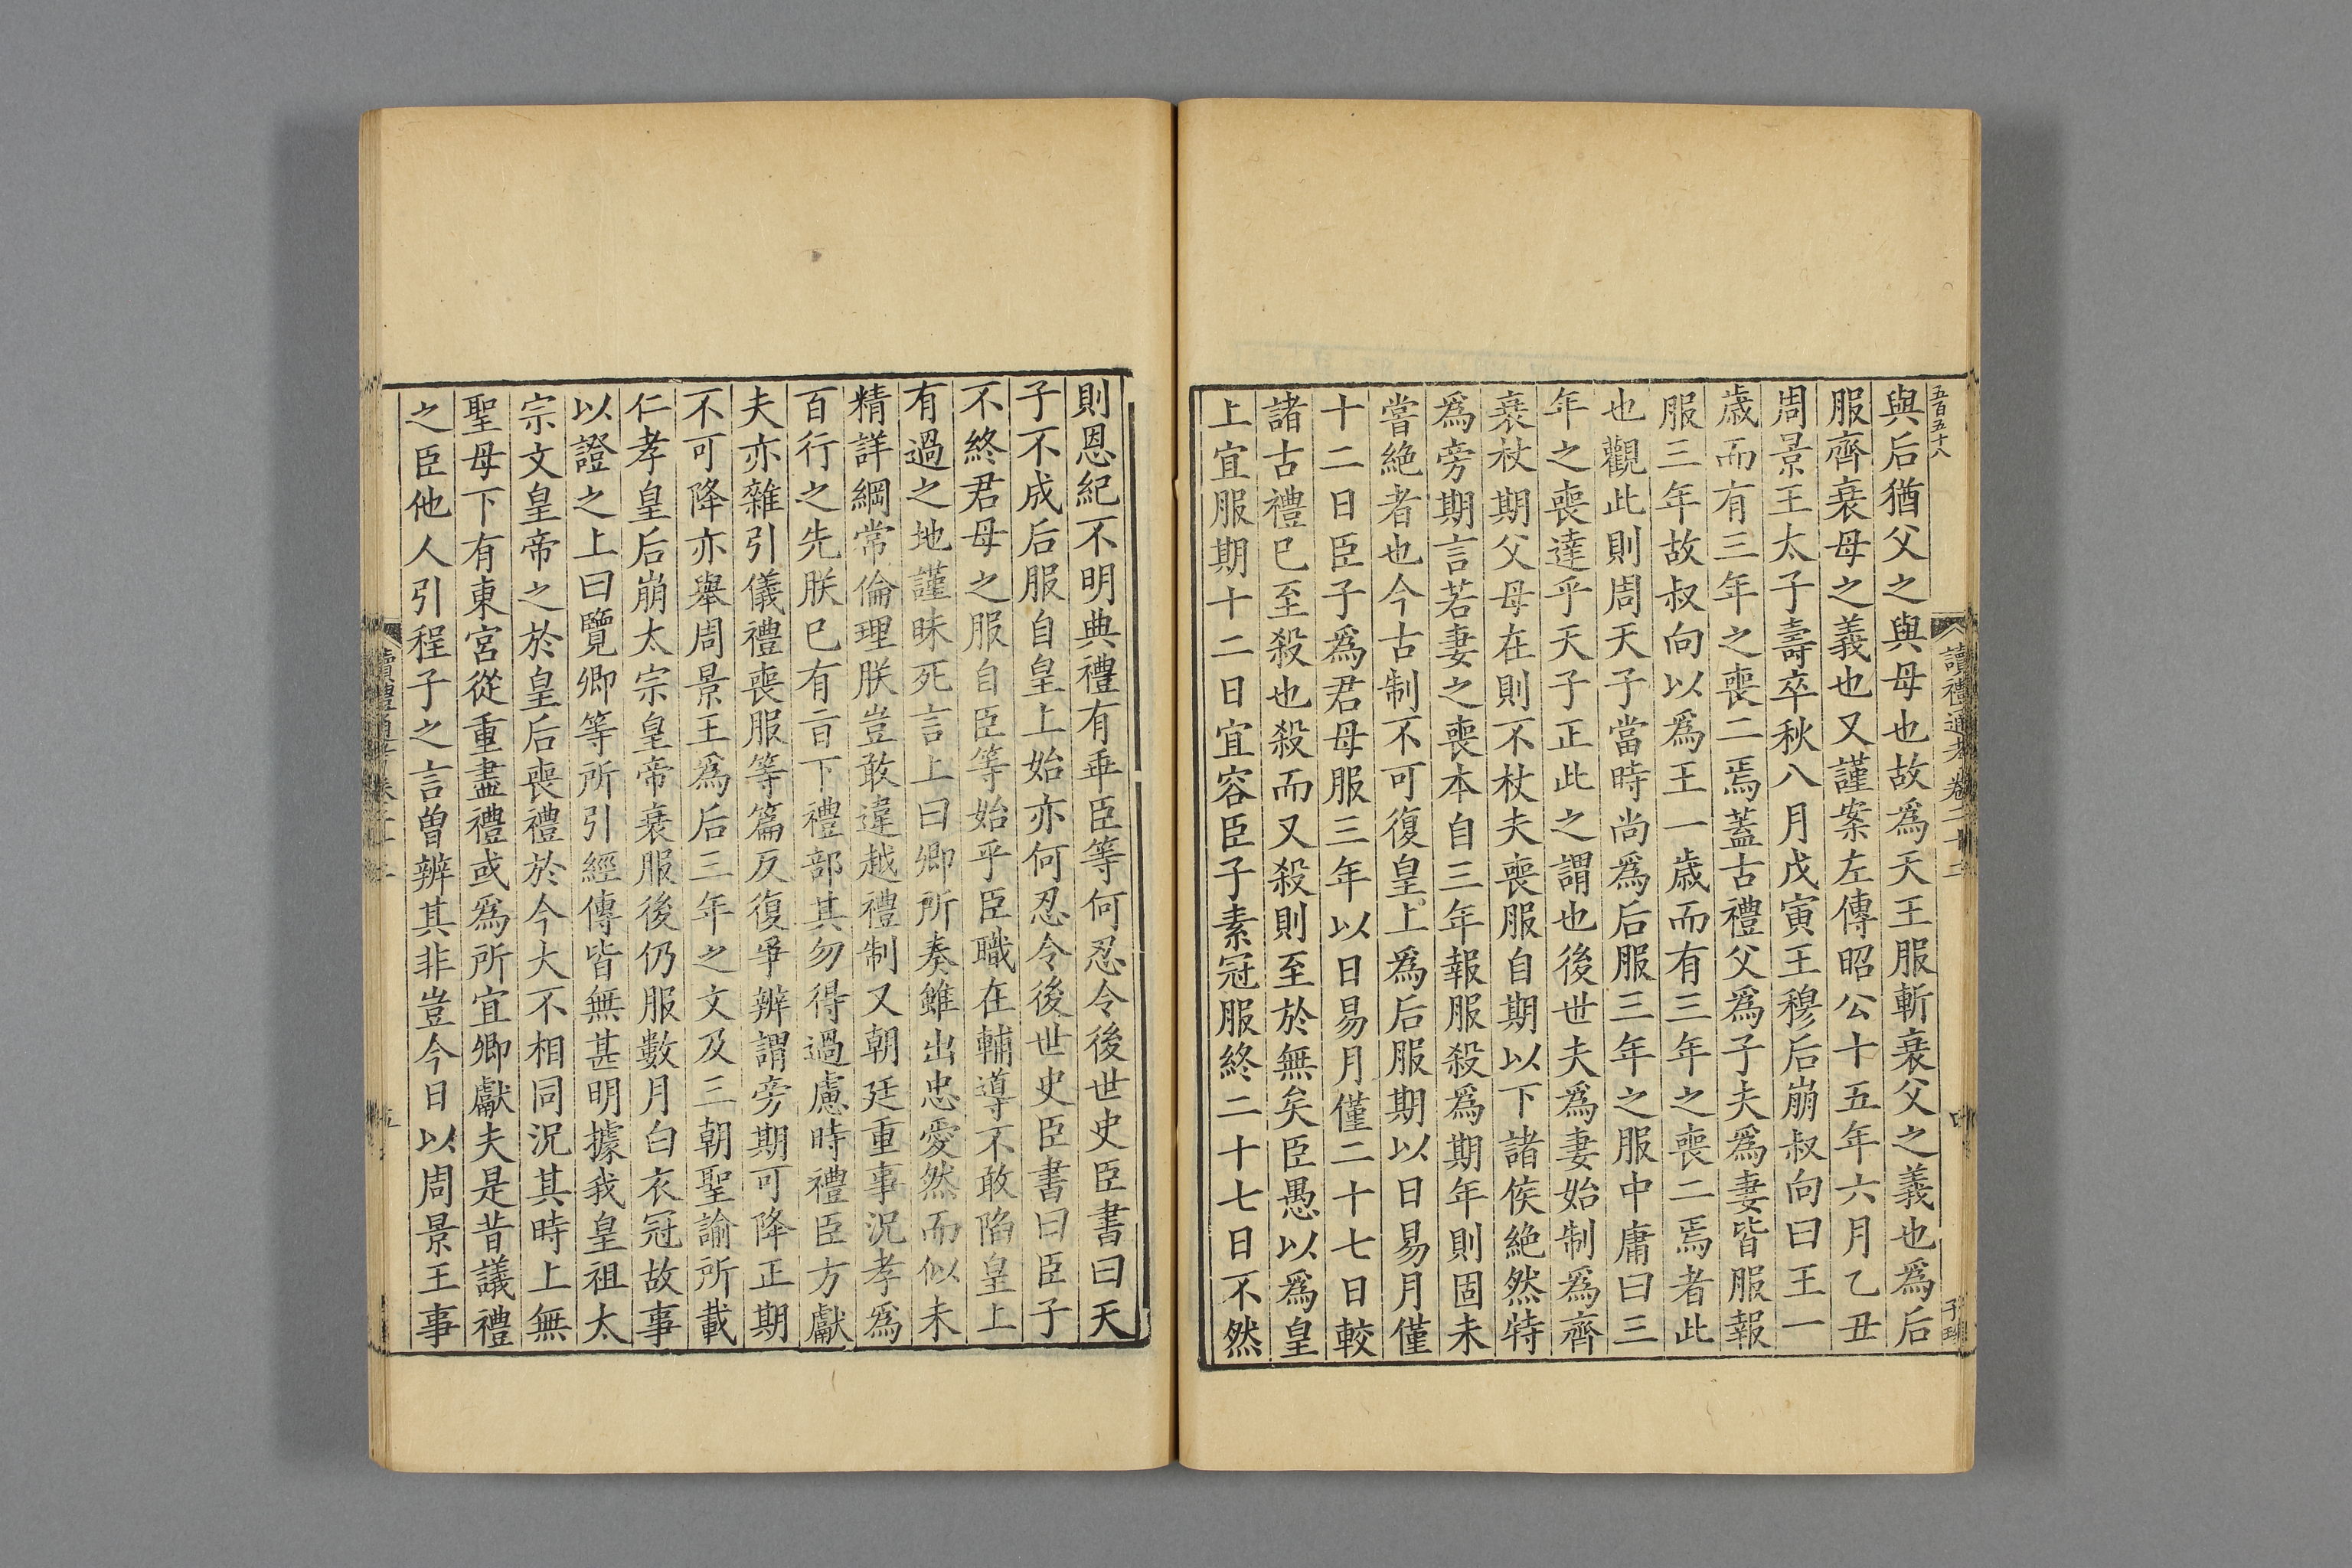 五百五十八
讀禮通考卷二十二
四
與后猶父之與母也故爲天王服斬衰父之義也爲后
服齊衰母之義也又謹案左傳昭公十五年六月乙丑
周景王太子壽卒秋八月戊寅王穆后崩叔向曰王一
歲而有三年之喪二焉蓋古禮父爲子夫爲妻皆服報
服三年故叔向以爲王一歲而有三年之喪二焉者此
也觀此則周天子當時尚爲后服三年之服中庸曰三
年之喪達乎天子正此之謂也後世夫爲妻始制爲齊
衰杖期父母在則不杖夫喪服自期以下諸侯絶然特
爲旁期言若妻之喪本自三年報服殺爲期年則固未
嘗絶者也今古制不可復皇上爲后服期以日易月僅
十二日臣子爲君母服三年以日易月僅二十七日較
諸古禮已至殺也殺而又殺則至於無矣臣愚以爲皇
上宜服期十二日宜容臣子素冠服終二十七日不然
則恩紀不明典禮有乖臣等何忍令後世史臣書曰天
子不成后服自皇上始亦何忍令後世史臣書曰臣子
不終君母之服自臣等始乎臣職在輔導不敢陷皇上
有過之地謹昧死言上曰卿所奏雖出忠愛然而似未
精詳綱常倫理朕豈敢違越禮制又朝廷重事況孝爲
百行之先朕已有㫖下禮部其勿得過慮時禮臣方獻
夫亦雜引儀禮喪服等篇反復爭辨謂旁期可降正期
不可降亦舉周景王爲后三年之文及三朝聖諭所載
仁孝皇后崩太宗皇帝衰服後仍服數月白衣冠故事
以證之上曰覽卿等所引經傳皆無甚明據我皇祖太
宗文皇帝之於皇后喪禮於今大不相同況其時上無
聖母下有東宮從重盡禮或爲所宜卿獻夫是昔議禮
之臣他人引程子之言曾辨其非豈今日以周景王事
讀禮通考卷二十二
五